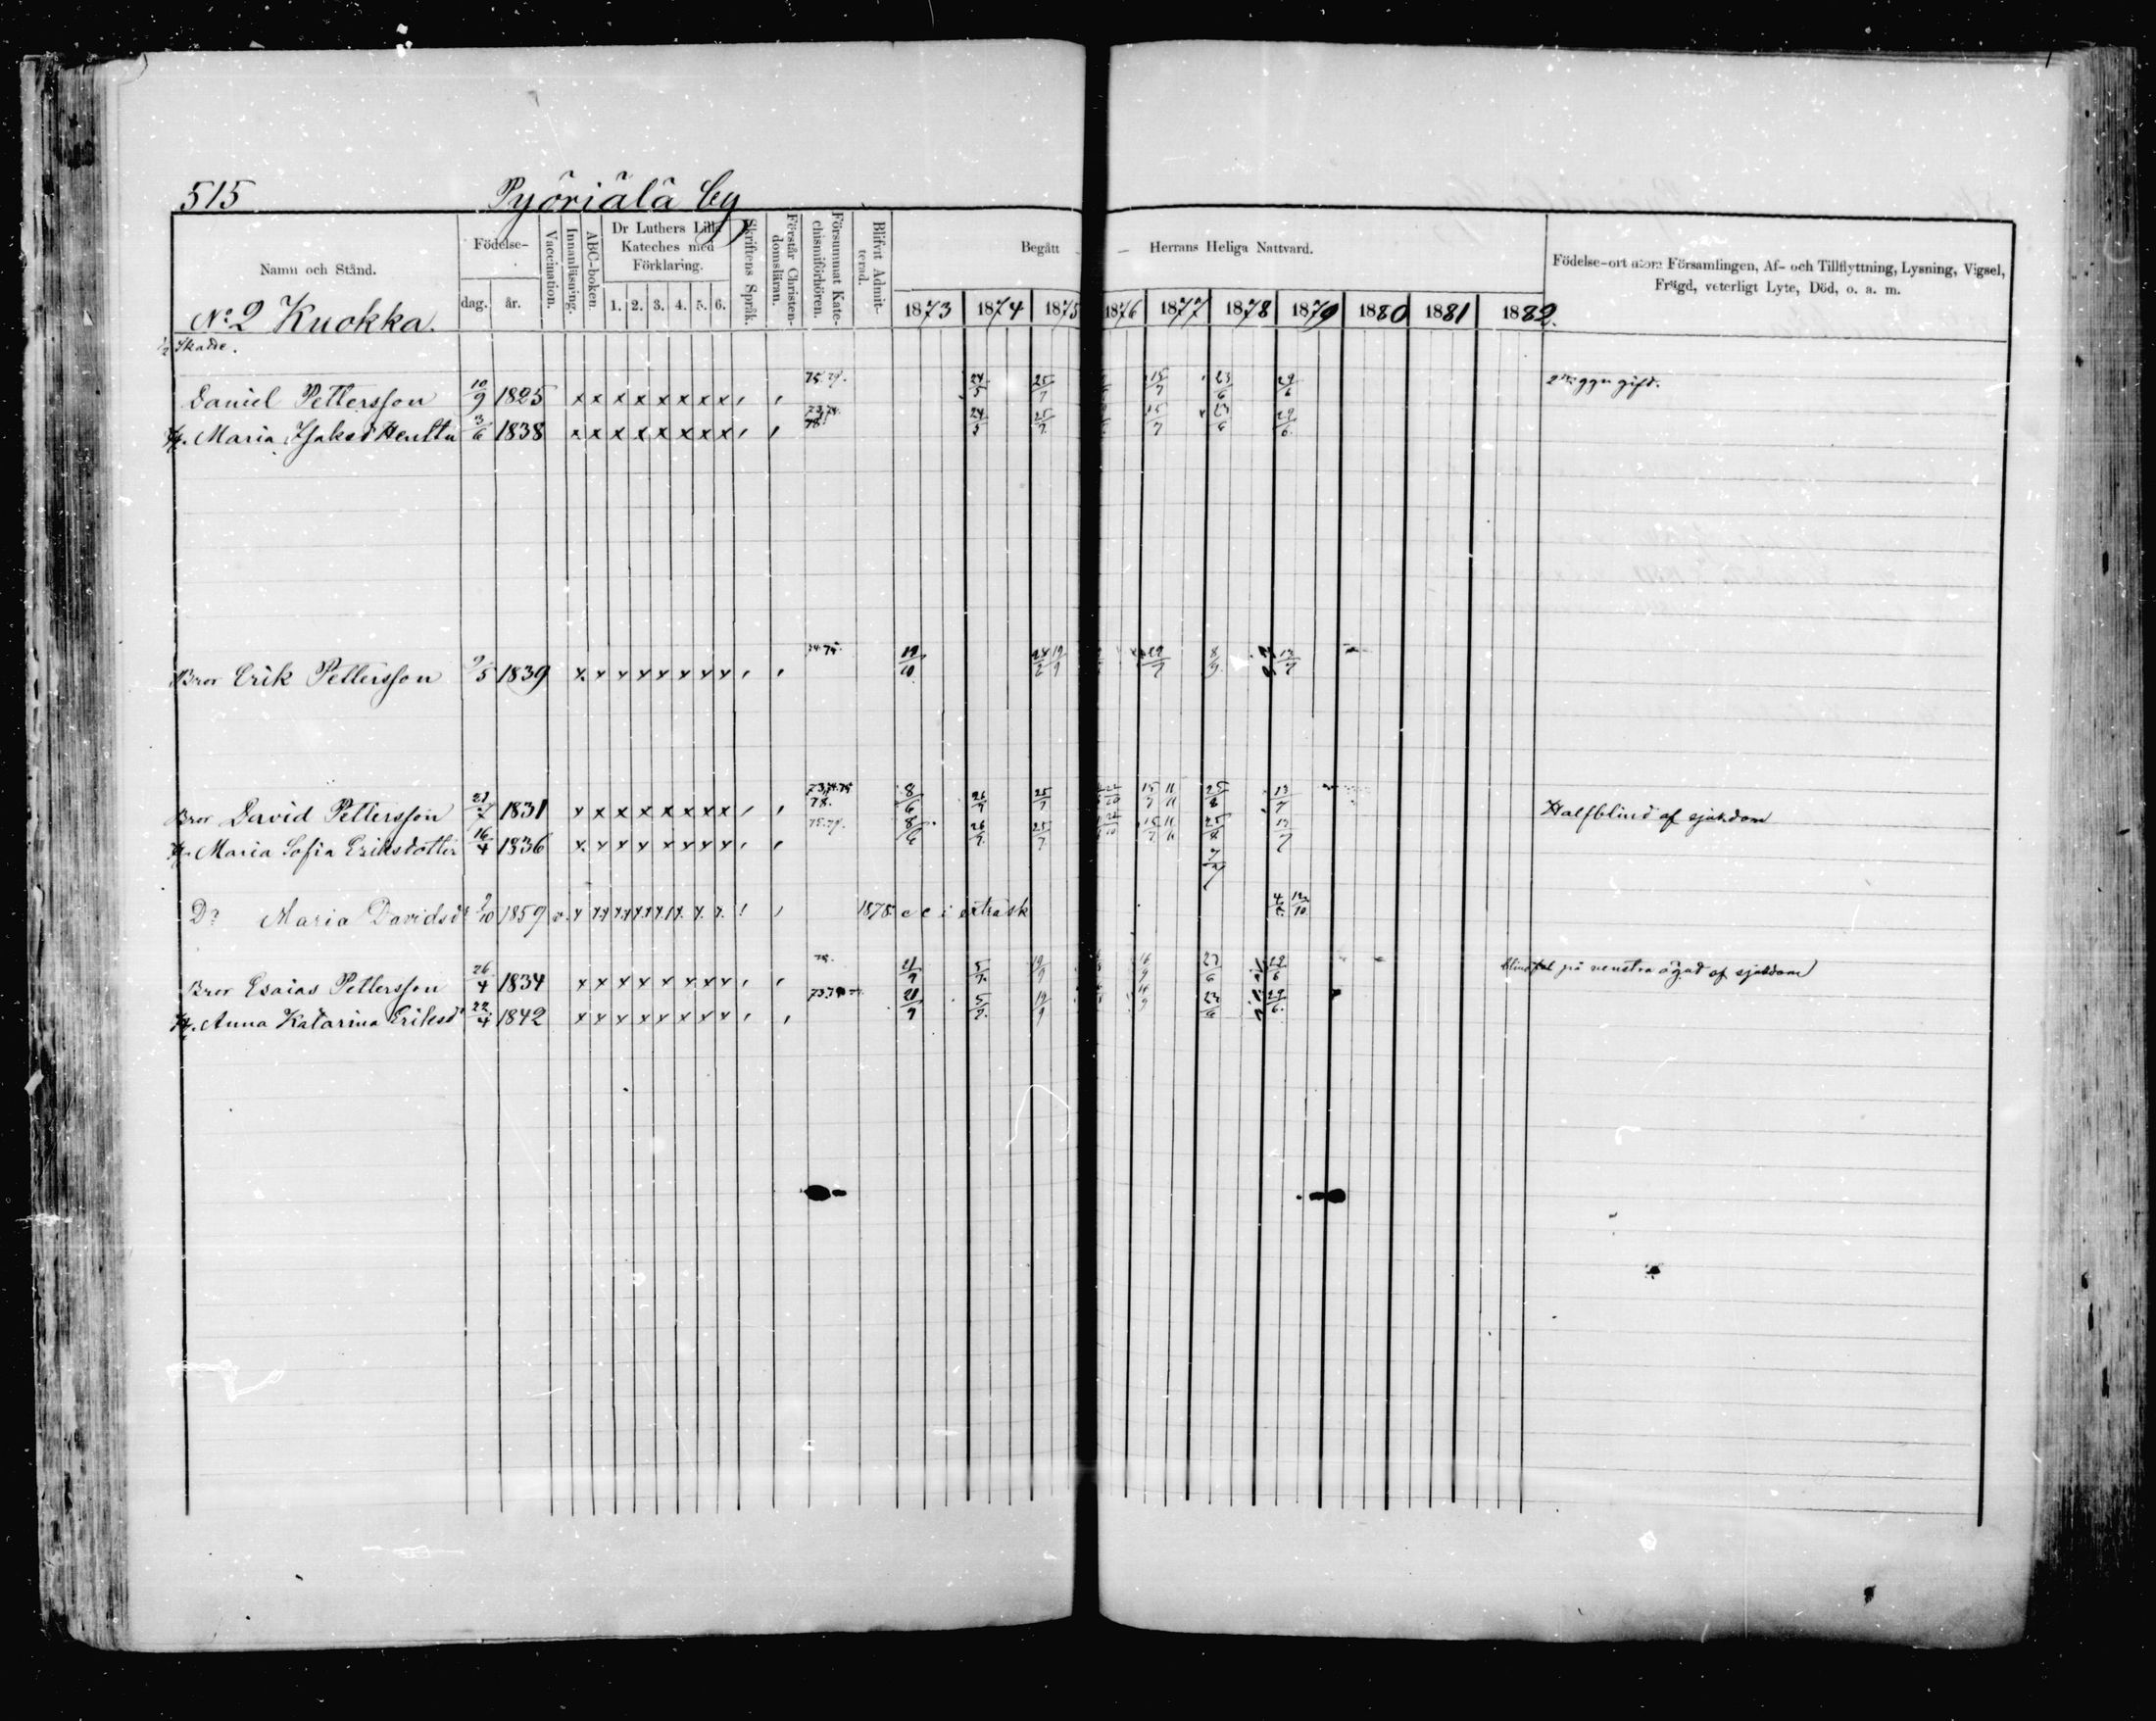 515 Pyöriälä by
Namn och Stånd. Födelse- dag. år. Vaccination. Innanläsning. ABC-boken. Dr Luthers Lilla Kateches med Förklaring. 1. 2. 3. 4. 5. 6. Skriftens Språk. Förstår Christendomsläran. Försummat Katechismiförhören. Blifvit Admitterad. Begått Herrans Heliga Nattvard. Födelse-ort utom Församlingen, Af- och Tillflyttning, Lysning, Vigsel, Frägd, veterligt Lyte, Död, o. a. m.
1873 1874 1875 1876 1877 1878 1879 1880 1881 1882.
No 2 Kuokka.
1/2 Skatte.
Daniel Pettersson 10/9 1825 x x x x x x x x 75. 24/5 25/7 15/7 23/6 29/6 gift.
H. Maria Isaksd Henttu 3/6 1838 x x x x x x x x 78 24/5 25/7 15/7 23/6 29/6
Bror Erik Pettersson 9/5 1839 x x x x x x x x 74 75 19/10 29/7 8/9 13/7
Bror David Pettersson 21/7 1831 x x x x x x x x 73.74.75 78. 8/6 26/7 25/7 15/7 11/11 25/8 13/7 Halfblind af sjukdom
H. Maria Sofia Eriksdotter 16/4 1836 x x x x x x x x 8/6 26/7 25/7 15/7 11/11 25/8 13/7
Dr Maria Davidsdr 1859 v. 1878 12/10
Bror Esaias Pettersson 26/4 1834 x x x x x x x x 21/9 5/7 19/9 23/6 29/6 på venstra ögat af sjukdom
H. Anna Katarina Eriksdr 22/4 1842 x x x x x x x x 21/9 5/7 19/9 23/6 29/6